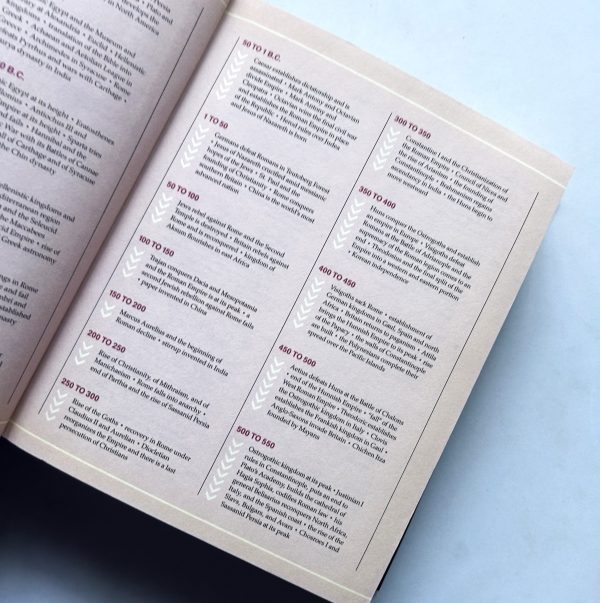 Egypt and the Museum and
Library at Alexandria • Euclid • Hellenistic
in North America
50 TO 1 B.C.
Caesar establishes dictatorship and is
assassinated • Mark Antony and Octavian
divide Empire • Mark Antony and
Cleopatra • Octavian wins the third civil war
and establishes the Roman Empire in place
of the Republic • Herod rules over Judea
and Jesus of Nazareth is born
1 TO 50
Germans defeat Romans in Teutoberg Forest
• Jesus of Nazareth crucified amid messianic
hopes of the Jews • St. Paul and the
founding of Christianity • Rome conquers
southern Britain • China is the world's most
advanced nation
50 TO 100
Jews rebel against Rome and the Second
Temple is destroyed • Britain rebels against
Rome and is reconquered • kingdom of
Aksum flourishes in east Africa
100 TO 150
Trajan conquers Dacia and Mesopotamia
and the Roman Empire is at its peak • a
second Jewish rebellion against Rome fails
• paper invented in China
150 TO 200
Marcus Aurelius and the beginning of
Roman decline • stirrup invented in India
200 TO 250
Rise of Christianity, of Mithraism, and of
Manicheism • Rome falls into anarchy •
end of Parthia and the rise of Sassanid Persia
250 TO 300
Rise of the Goths • recovery in Rome under
Claudius II and Aurelian • Diocletian
reorganizes the Empire and there is a last
persecution of Christians
300 TO 350
Constantine I and the Christianization of
the Roman Empire • Council of Nicaea and
the rise of Arianism • the founding of
Constantinople • Brahmanism regains
ascendancy in India • the Huns begin to
move westward
350 TO 400
Huns conquer the Ostrogoths and establish
an empire in Europe • Visigoths defeat
Romans at the Battle of Adrianople and the
supremacy of the Roman legion comes to an
end • Theodosius and the final split of the
Empire into a western and eastern portion
• Korean independence
400 TO 450
Visigoths sack Rome • establishment of
German kingdoms in Gaul, Spain and north
Africa • Britain returns to paganism • Attila
brings the Hunnish Empire to its peak • rise
of the Papacy • the walls of Constantinople
are built • the Polynesians complete their
spread over the Pacific Islands
450 TO 500
Aetius defeats Huns at the Battle of Chalons
• end of the Hunnish Empire • "fall" of the
West Roman Empire • Theodoric establishes
the Ostrogothic kingdom in Italy • Clovis
establishes the Frankish kingdom in Gaul •
Anglo-Saxons invade Britain • Chichen Itza
founded by Mayans
500 TO 550
Ostrogothic kingdom at its peak • Justinian I
rules in Constantinople, puts an end to
Plato's Academy, builds the cathedral of
Hagia Sophia, codifies Roman law • his
general Belisarius reconquers North Africa,
Italy, and the Spanish coast • the rise of the
Slavs, Bulgars, and Avars • Chosroes I and
Sassanid Persia at its peak